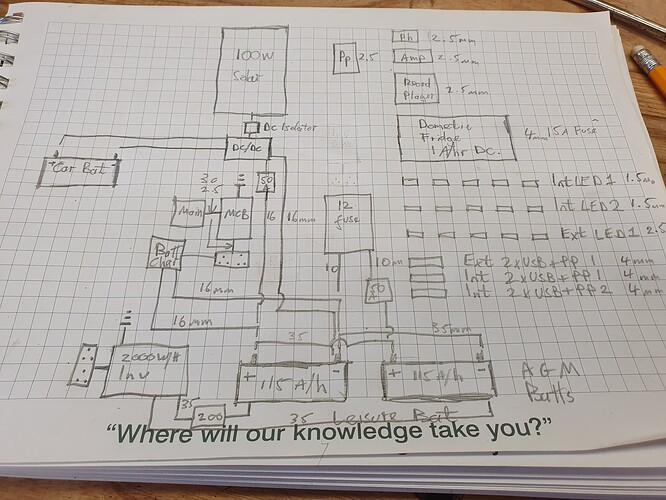 100W
Solar
Pp 2.5
Ph 2.5mm
Amp 2.5mm
Player 2.5mm
Dc Isolator
DC/DC
Car Bat
+ -
Dometic
Fridge
1 A/hr DC.
4mm 15A Fuse
3.0
2.5
50
A
Main
MCB
16
16mm
12
fuse
Int LED 1 1.5mm
Int LED 2 1.5mm
Ext LED 1 2.5
Batt
Char
10
10m
50
A
Ext 2xUSB+PP 1 4mm
Int 2xUSB+PP 1 4mm
Int 2xUSB+PP 2 4mm
16mm
16mm
35
35mm
2000W/H
Inv
+ -
115 A/h
+ -
115 A/h
AGM
Batts
35
200
35 Leisure Bat
"Where will our knowledge take you?"